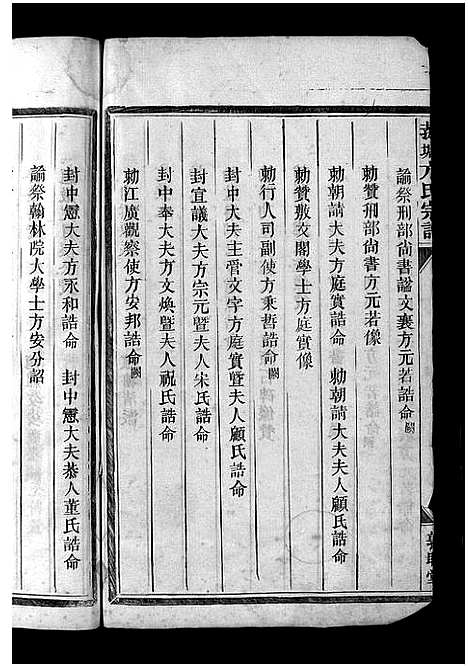 方氏宗譜
諭祭刑部尚書諡文襄方元若誥命闕
勅贊刑部尚書方元若像
勅朝請大夫方庭實誥命 勅朝請大夫夫人顧氏誥命
勅贊敷文閣學士方庭實像
勅行人司副使方秉哲誥命闕
封中大夫主管文字方庭實暨夫人顧氏誥命
封宜議大夫方宗元暨夫人宋氏誥命
封中奉大夫方文煥暨夫人祝氏誥命
勅江廣觀察使方安邦誥命闕
封中憲大夫方永和誥命 封中憲大夫恭人董氏誥命
諭祭翰林院大學士方安分詔